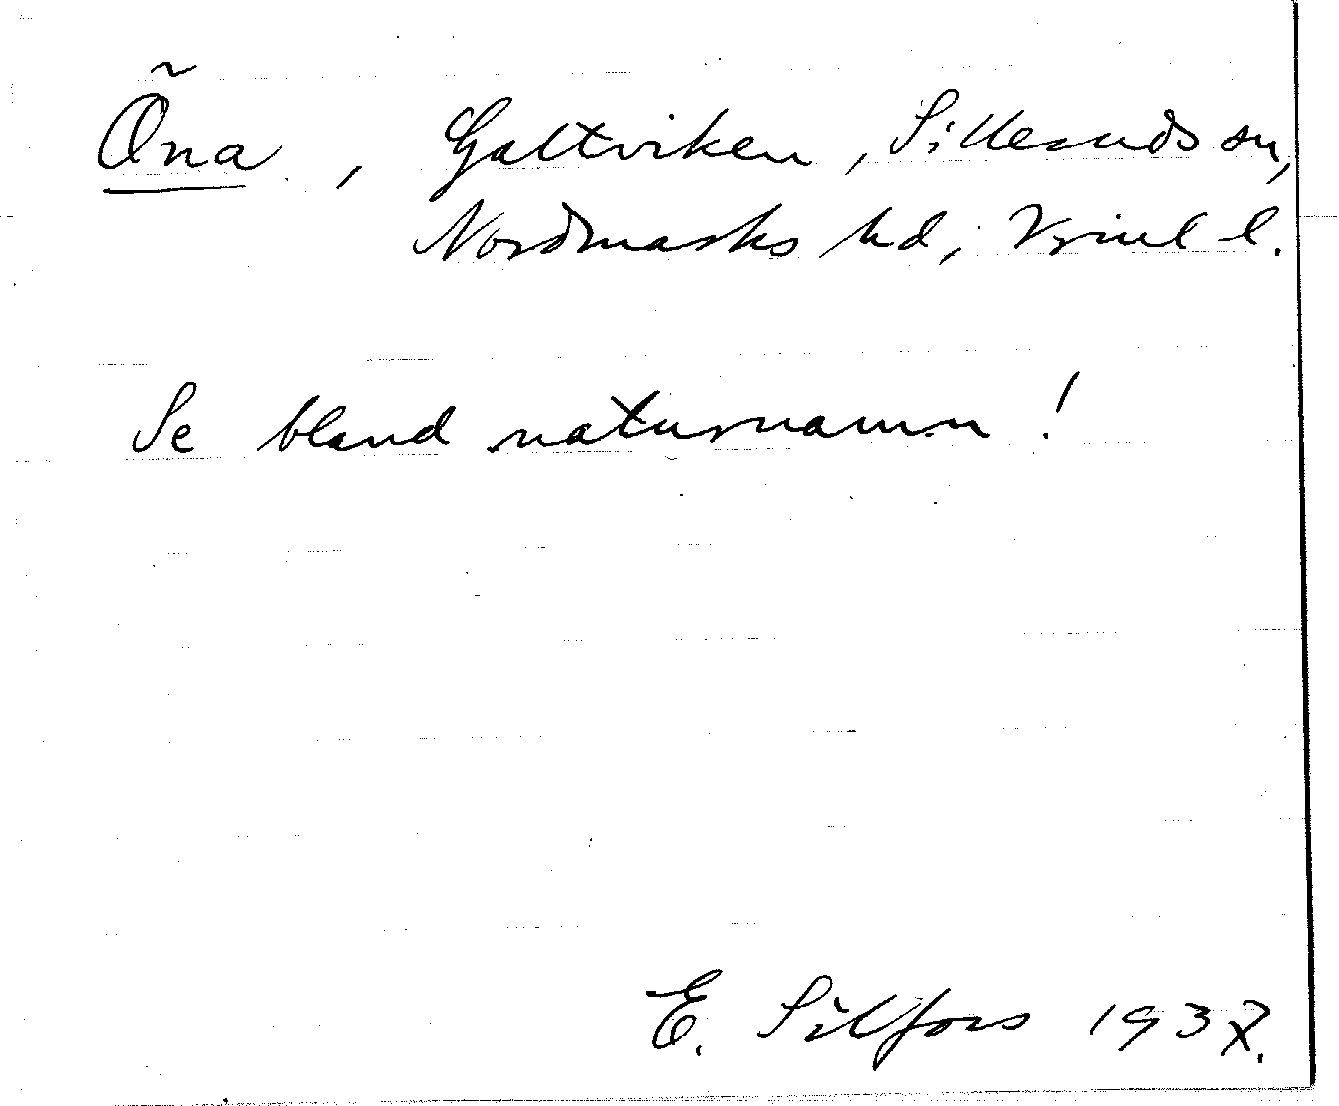 Öna, Galtviken, Silleruds sn,
Nordmarks hd, Vrml l.
Se bland naturnamn!
E. Silfors 1937.